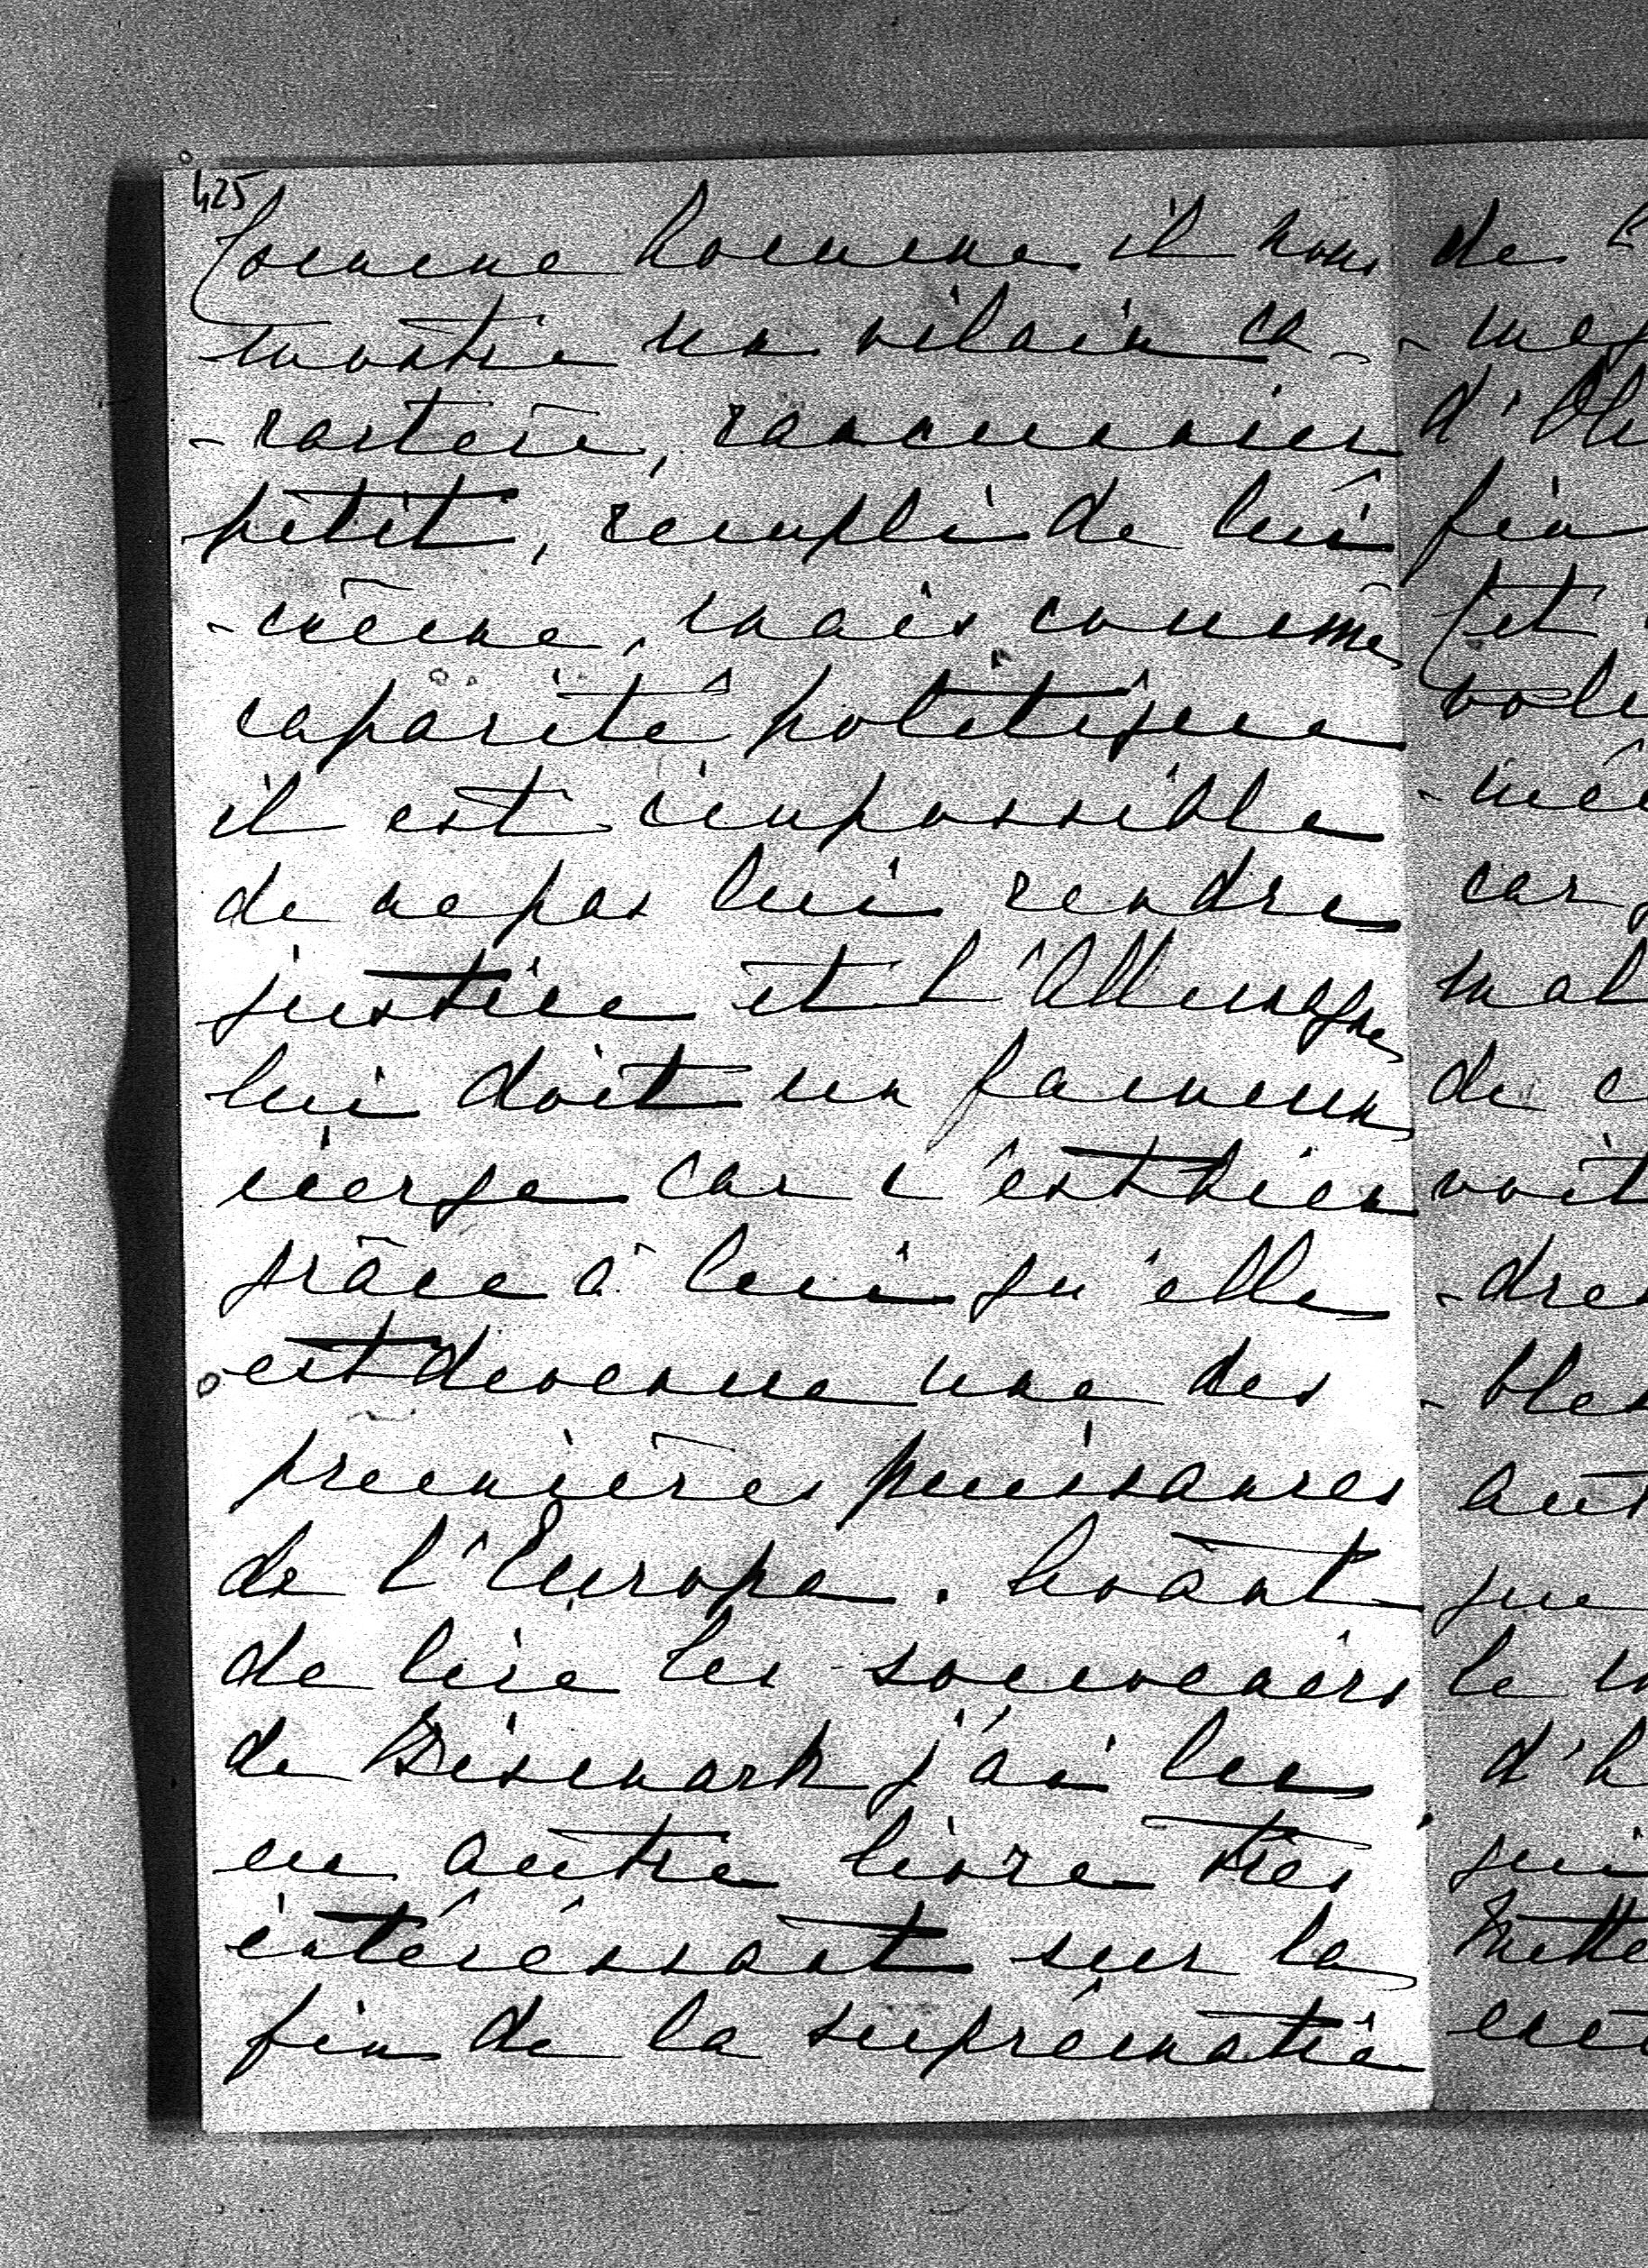 425
Comme homme il nous
montre un vilain ca-
-ractère, rancunier
petit, rempli de lui
-même, mais comme
capacité politique
il est impossible
de ne pas lui rendre
justice et l'Allemagne
lui doit un fameux
cierge car c'est bien
grâce à lui qu'elle
est devenue une des
premières puissances
de l'Europe. Avant
de lire les souvenirs
de Bismark j'ai lu
un autre livre très
intéréssant sur la
fin de la suprématie
de
d'
fin
et
-mé
car
mal
de
voit
-dre
-bles
que
le
d'h
qui